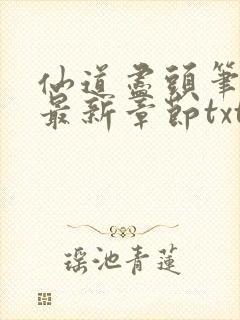 仙道盡頭筆
最新章節txt
瑶池青蓮